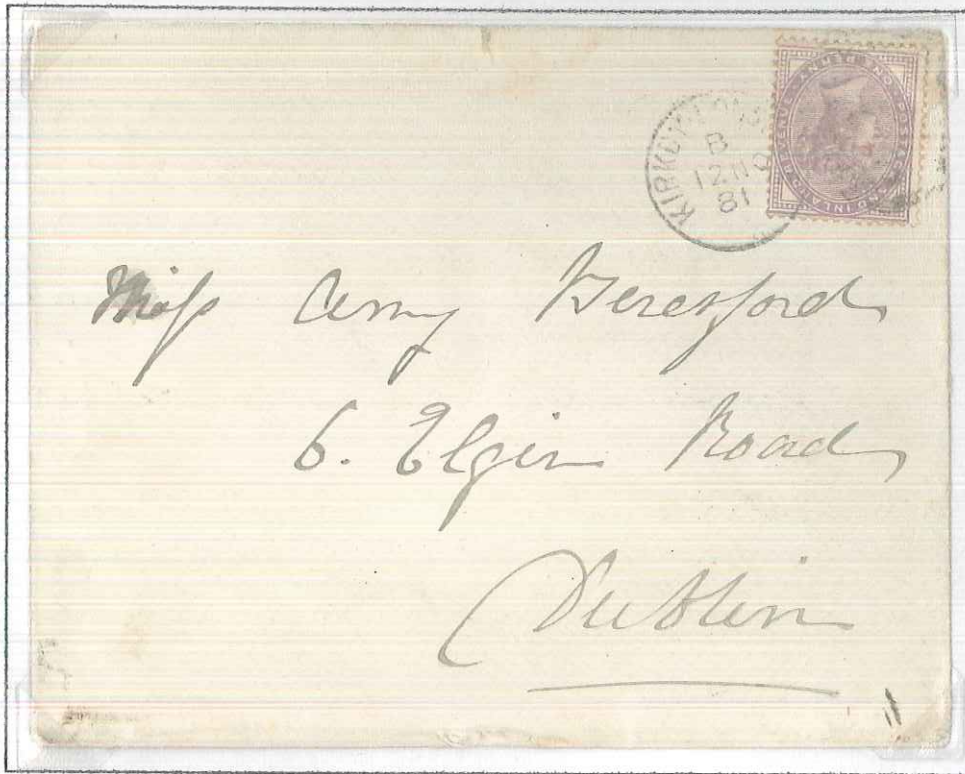 B
12 NO
81
Miss Amy Beresford
6. Elgin Road
Dublin